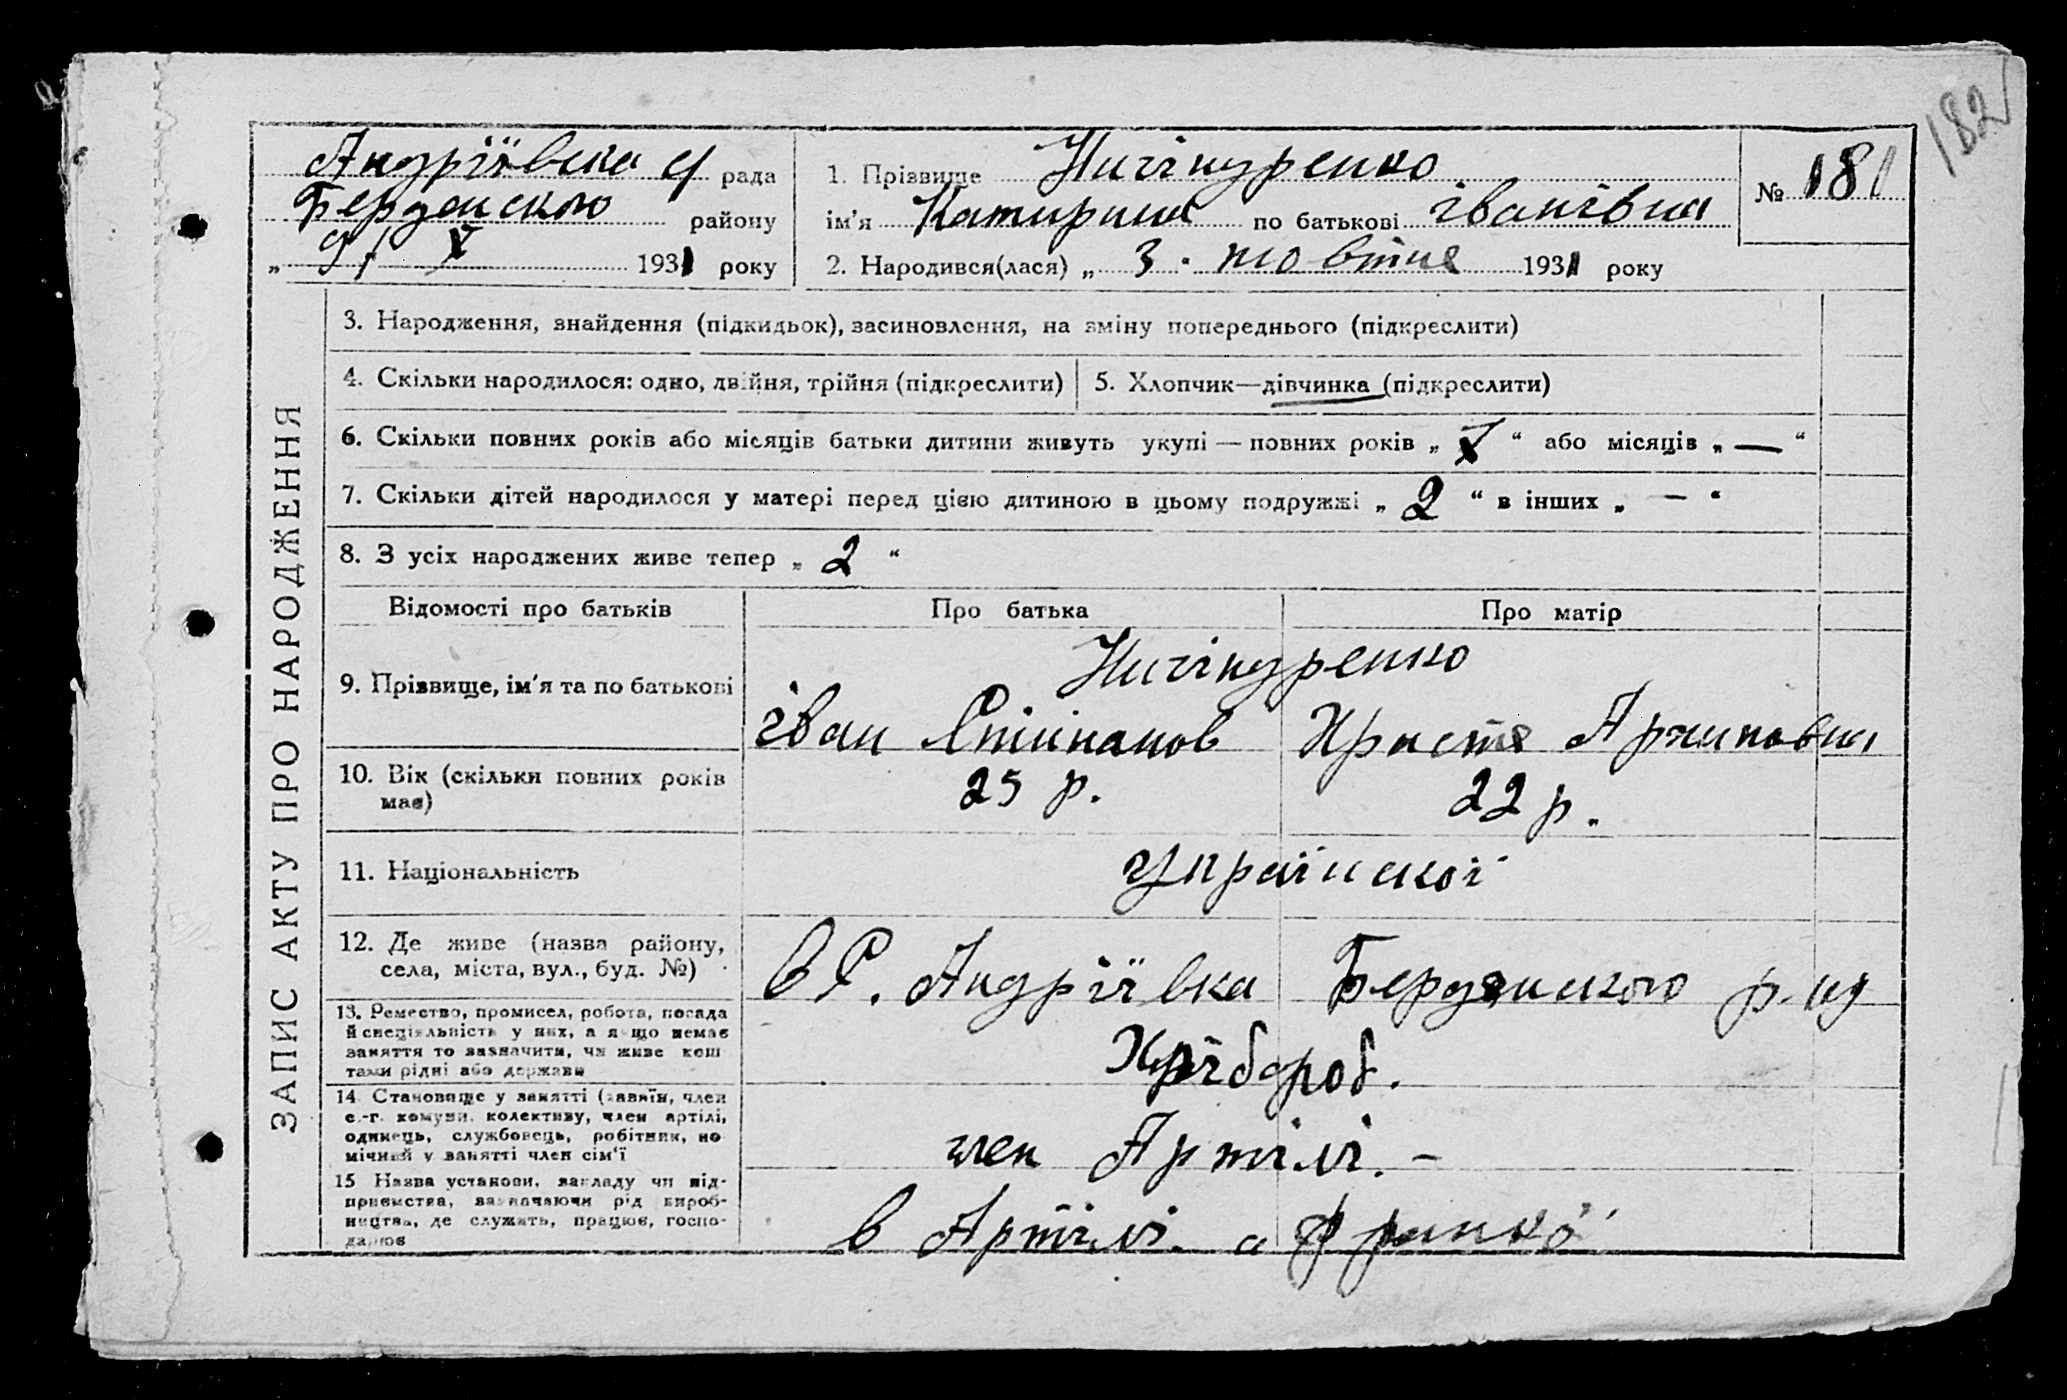 182
Андріївска с/ рада
Бердянского району
„ 9/ " X 1931 року
1. Прізвище Ничіпуренко
ім'я Катирина по батькові іванівна
№ 181
2. Народився(лася) „ 3 . жовтня 1931 року
ЗАПИС АКТУ ПРО НАРОДЖЕННЯ
3. Народження, знайдення (підкидьок), засиновлення, на зміну попереднього (підкреслити)
4. Скільки народилося: одно, двійня, трійня (підкреслити)
5. Хлопчик—дівчинка (підкреслити)
6. Скільки повних років або місяців батьки дитини живуть укупі — повних років „ “ або місяців „ — “
7. Скільки дітей народилося у матері перед цією дитиною в цьому подружжі „ 2 “ в інших „ — “
8. З усіх народжених живе тепер „ 2 “
Відомості про батьків
Про батька
Про матір
9. Прізвище, ім'я та по батькові
Ничіпуренко
іван Стіпанов
Христя Архиповна
10. Вік (скільки повних років має)
25 р.
22 р.
11. Національність
Українскої
12. Де живе (назва району, села, міста, вул., буд. №)
в С. Андріївка Бердянского р-ну
13. Ремество, промисел, робота, посада
й спеціяльність у них, а якщо немає
заняття то зазначити, чи живе кош
тами рідні або держави
Хлібороб.
14. Становище у занятті (хазяїн, член
с.-г. комуни, колективу, член артілі,
одинець, службовець, робітник, по
мічний у занятті член сім'ї
член Артілі. –
15 Назва установи, закладу чи під-
приємства, зазначаючи рід вироб-
ництва, де служить, працює, госпо-
дарює
в Артілі. „Франко"